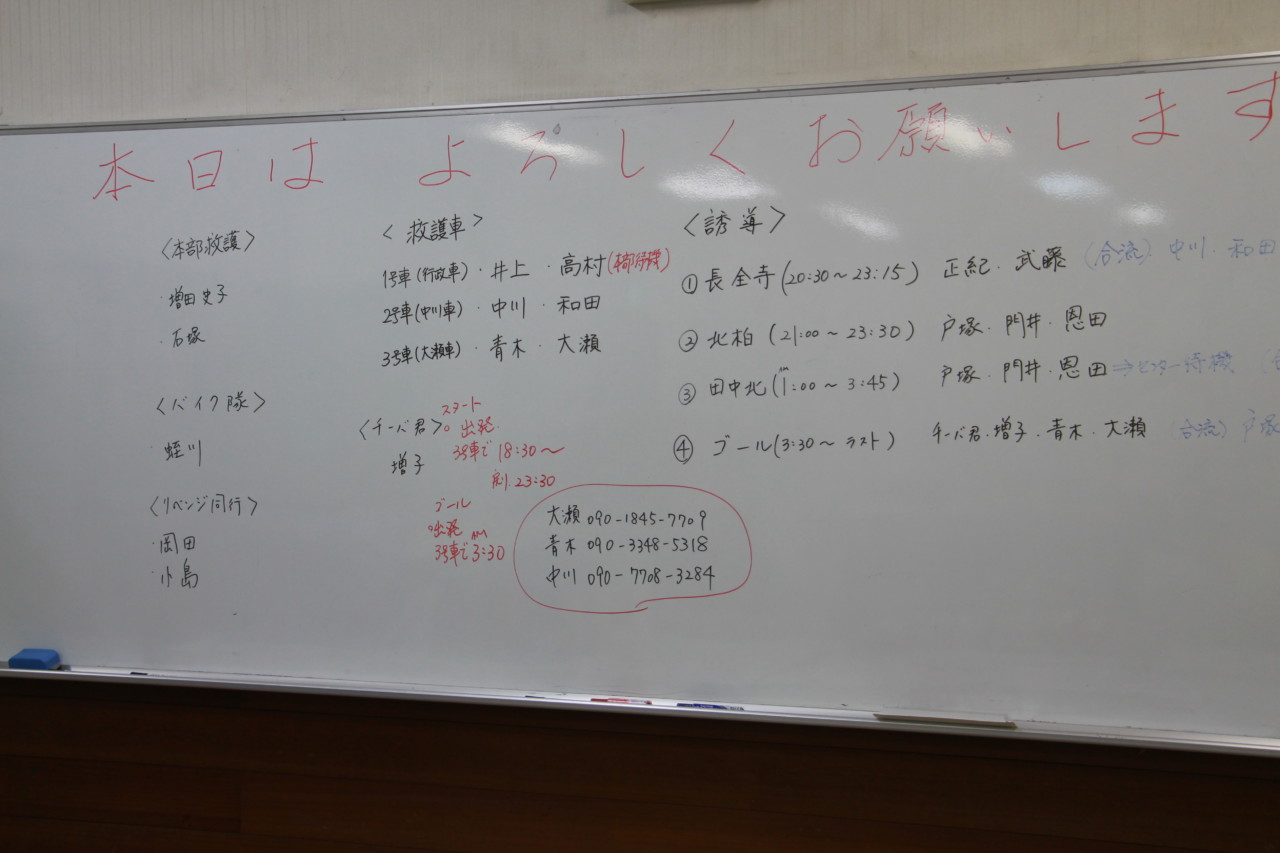 本日は よろしくお願いします
〈本部救護〉
・増田史子
・石塚
〈バイク隊〉
・蛭川
〈リベンジ同行〉
・岡田
・小島
〈救護車〉
1号車(行政車)・井上・高村(本部待機)
2号車(中川車)・中川・和田
3号車(大瀬車)・青木・大瀬
〈チーバ君〉
増子
スタート
○出発
3号車で18:30〜
戻り.23:30
ゴール
○出発
3号車でAM3:30
大瀬 090-1845-7709
青木 090-3348-5318
中川 090-7708-3284
〈誘導〉
①長全寺(20:30〜23:15) 正紀・武藤(合流)中川・和田
②北柏(21:00〜23:30) 戸塚・門井・恩田
③田中北(AM1:00〜3:45) 戸塚・門井・恩田⇒センター待機
④ゴール(3:30〜ラスト) チーバ君・増子・青木・大瀬 合流)戸塚